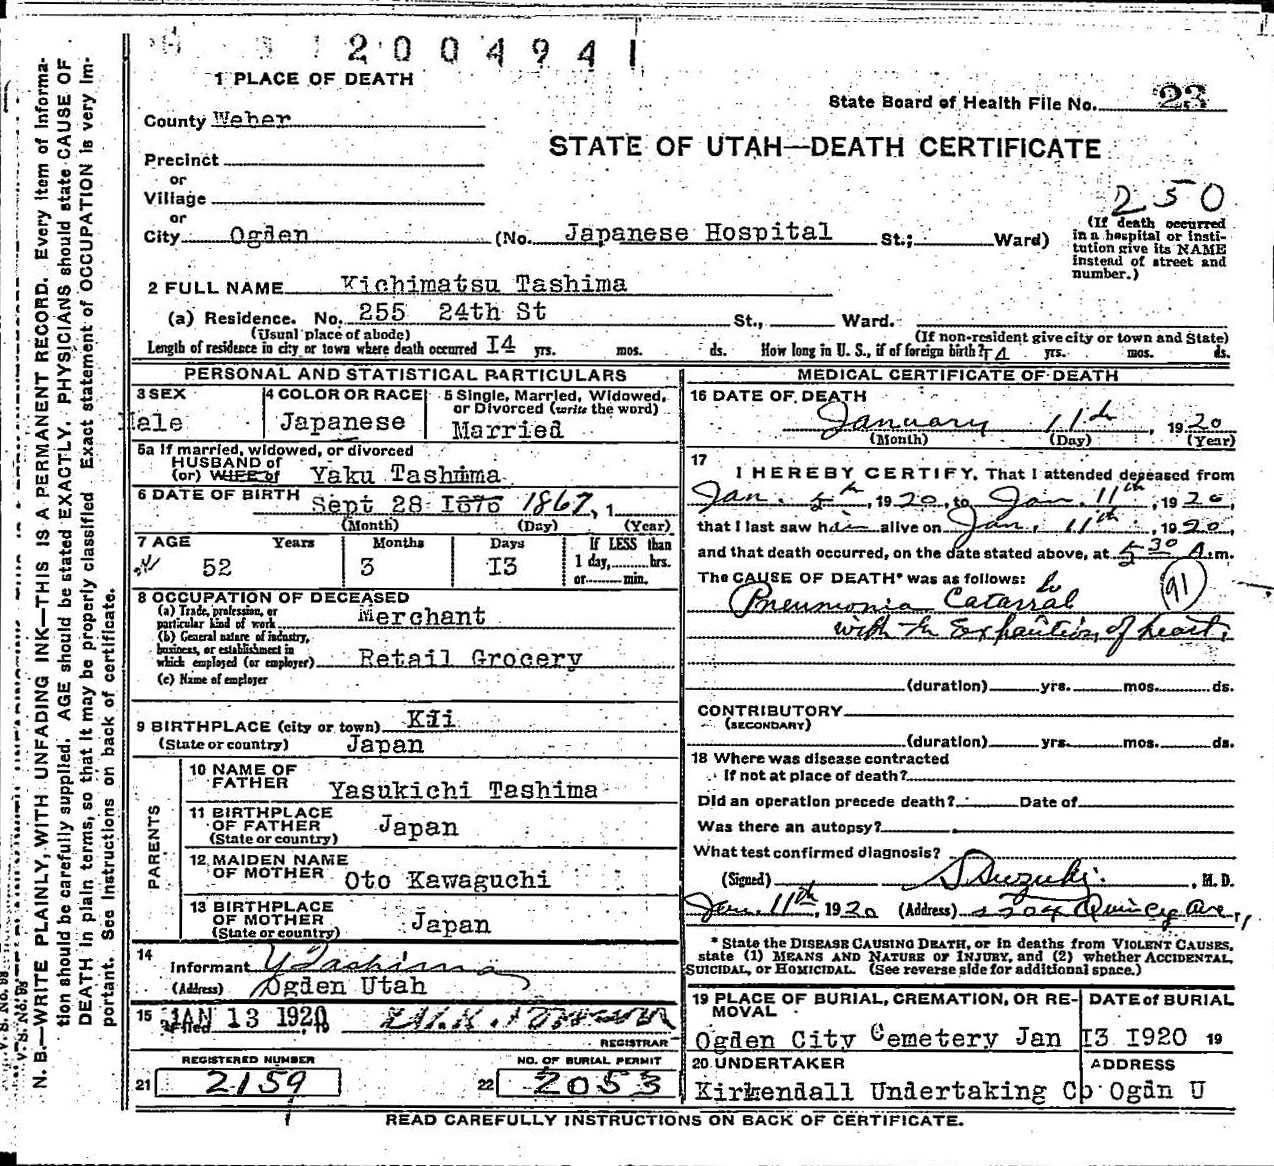 2004941
1 PLACE OF DEATH
State Board of Health File No. 23
County Weber
STATE OF UTAH—DEATH CERTIFICATE
Precinct
or
Village
250
or
City Ogden (No. Japanese Hospital St.; Ward)
(If death occurred in a hospital or institution give its NAME instead of street and number.)
2 FULL NAME Kichimatsu Tashima
(a) Residence. No. 255 24th St St., Ward.
(Usual place of abode) (If non-resident give city or town and State)
Length of residence in city or town where death occurred I4 yrs. mos. ds. How long in U. S., if of foreign birth? yrs. mos. ds.
PERSONAL AND STATISTICAL PARTICULARS
3 SEX
Male
4 COLOR OR RACE
Japanese
5 Single, Married, Widowed, or Divorced (write the word)
Married
5a If married, widowed, or divorced
HUSBAND of
(or) WIFE of Yaku Tashima
6 DATE OF BIRTH Sept 28 I876 1867, 1
(Month) (Day) (Year)
7 AGE Years Months Days If LESS than
52 3 I3 1 day, hrs.
or min.
8 OCCUPATION OF DECEASED
(a) Trade, profession, or particular kind of work Merchant
(b) General nature of industry, business, or establishment in which employed (or employer) Retail Grocery
(c) Name of employer
9 BIRTHPLACE (city or town) Kii
(State or country) Japan
PARENTS
10 NAME OF FATHER Yasukichi Tashima
11 BIRTHPLACE OF FATHER Japan
(State or country)
12 MAIDEN NAME OF MOTHER Oto Kawaguchi
13 BIRTHPLACE OF MOTHER Japan
(State or country)
14 Informant Y Tashima
(Address) Ogden Utah
15 Filed JAN 13 1920
REGISTRAR
REGISTERED NUMBER
21 2159
NO. OF BURIAL PERMIT
22 2053
MEDICAL CERTIFICATE OF DEATH
16 DATE OF DEATH
January 11th, 1920
(Month) (Day) (Year)
17 I HEREBY CERTIFY, That I attended deceased from
Jan. 5th, 1920, to Jan. 11th, 1920,
that I last saw him alive on Jan. 11th, 1920,
and that death occurred, on the date stated above, at 5 30 A.m.
The CAUSE OF DEATH* was as follows:
Pneumonia Catarral 91
with Exhaution of heart.
(duration) yrs. mos. ds.
CONTRIBUTORY
(SECONDARY)
(duration) yrs. mos. ds.
18 Where was disease contracted
If not at place of death?
Did an operation precede death? Date of
Was there an autopsy?
What test confirmed diagnosis?
(Signed) S Suzuki, M. D.
Jan. 11th, 1920 (Address) Quincy Ave.,
* State the DISEASE CAUSING DEATH, or in deaths from VIOLENT CAUSES,
state (1) MEANS AND NATURE OF INJURY, and (2) whether ACCIDENTAL,
SUICIDAL, or HOMICIDAL. (See reverse side for additional space.)
19 PLACE OF BURIAL, CREMATION, OR REMOVAL
Ogden City Cemetery
DATE of BURIAL
Jan I3 I920 19
20 UNDERTAKER
Kirkendall Undertaking Co
ADDRESS
Ogdn U
READ CAREFULLY INSTRUCTIONS ON BACK OF CERTIFICATE.
N. B.—WRITE PLAINLY, WITH UNFADING INK—THIS IS A PERMANENT RECORD. Every item of informa-
tion should be carefully supplied. AGE should be stated EXACTLY. PHYSICIANS should state CAUSE OF
DEATH in plain terms, so that it may be properly classified. Exact statement of OCCUPATION is very im-
portant. See instructions on back of certificate.